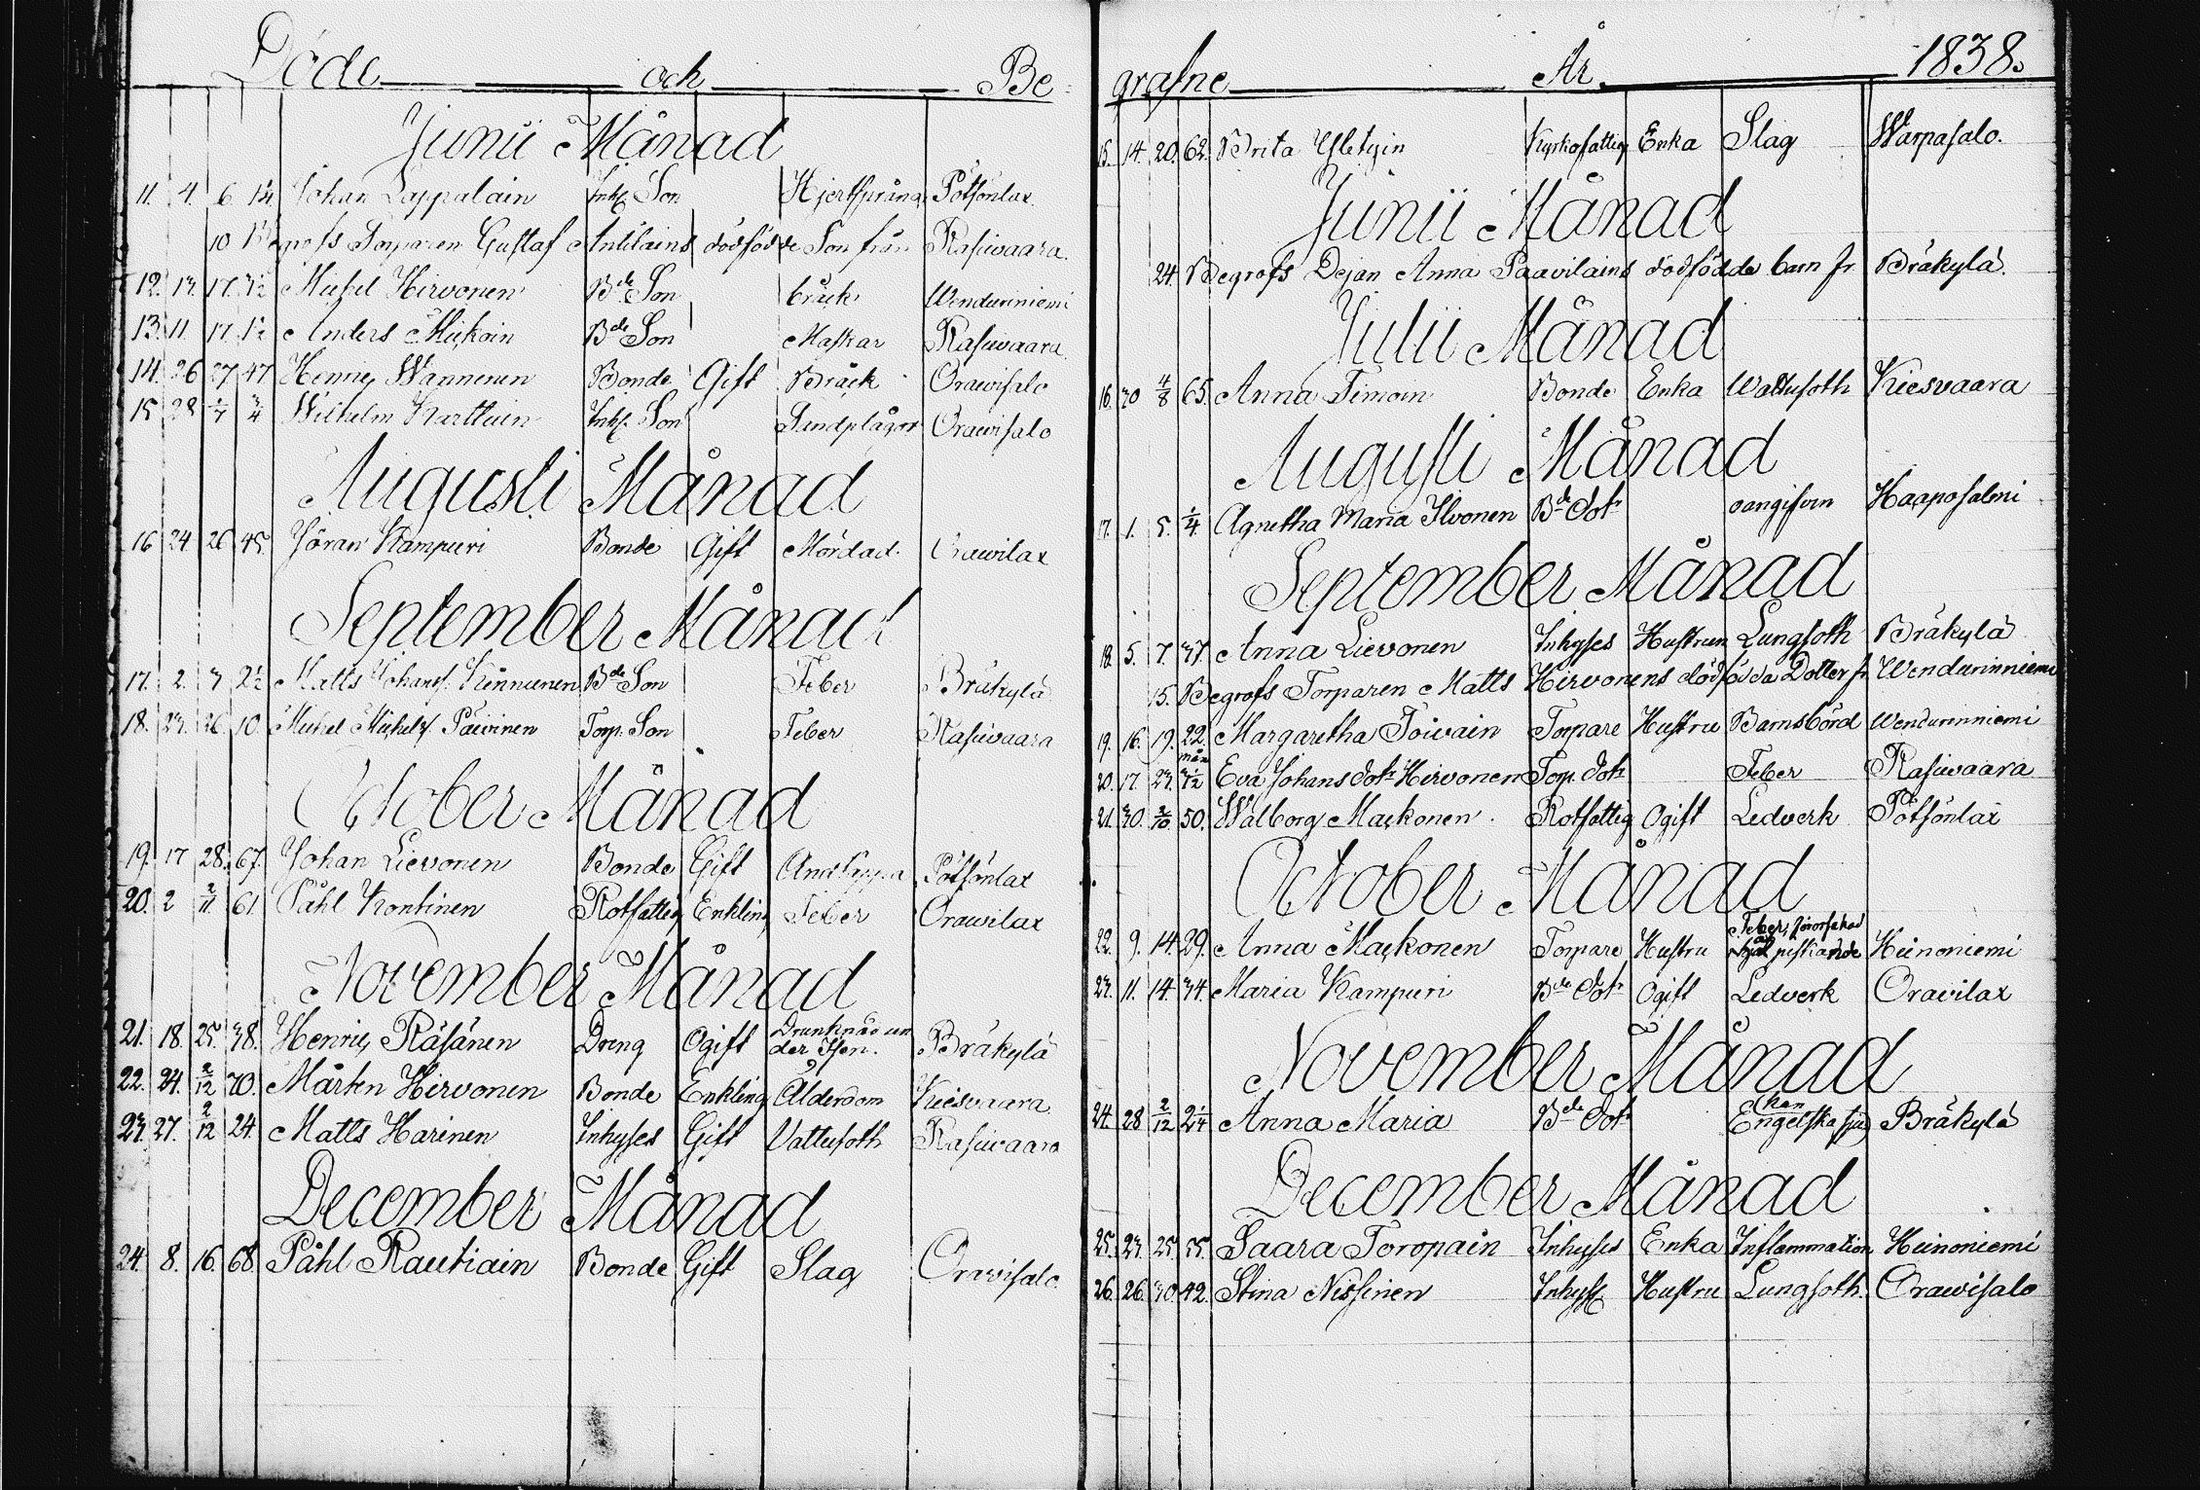 Döde och Be:
Junii Månad
11. 4. 6 1¼ Johan Lappalain Inh. Son Hjertspräng Pötsönlax
10 Begrofs Torparen Gustaf Antilains dödfödde Son från Rasiwaara.
12. 13. 17. Michel Hirvonen Bde Son bråck Wenduriniemi
13. 11. 17. 1½ Anders Muikoin Bde Son Maskar Rasiwaara
14. 26 27 47 Henric Wannenen Bonde Gift Bråck Orawisalo
15 28 1/7 3/4 Wilhelm Karttuin Inh. Son Tandplågor Orawisalo
Augusti Månad
16 24 26 45. Jöran Kampuri Bonde Gift Mördad. Orawilax
September Månad
17. 2. 3 2½ Matts Johans. Kinnunen Bde Son Feber Bräkylä
18. 23. 26. 10. Michel Michels. Päivinen Torp. Son Feber Rasiwaara
October Månad
19. 17 28. 67. Johan Lievonen Bonde Gift Pötsönlax
20. 2 2/11. 61 Påhl Kontinen Rotfattig Enkling Feber Orawilax
November Månad
21. 18. 25. 38. Henric Räsänen Dreng Ogift Drunknad un
der Isen. Bräkylä
22. 24. 2/12 70. Mårten Hirvonen Bonde Enkling Ålderdom Kiesvaara
23. 27. 2/12 24. Matts Harinen Inhyses Gift Vattusoth Rasiwaara
December Månad
24. 8. 16. 68 Påhl Rautiain Bonde Gift Slag Orawisalo.
grafne År. 1838.
15. 14. 20. 62. Brita Kyrkofattig Enka Slag Warpasalo.
Junii Månad
24. Begrofs Dejan Anna Paavilains dödfödde barn fr Bräkylä.
Julii Månad
16. 30 4/8 65. Anna Timoin Bonde Enka Wattusoth Kiesvaara
Augusti Månad
17. 1. 5. ¼ Agnetha Maria Ilvonen Bde Dotr oangifven Haaposalmi
September Månad
18. 5. 7. 37. Anna Lievonen Inhyses Hustrun Lungsoth Bräkylä
15. Begrofs Torparen Matts Hirvonens dödfödda Dotter fr. Wendurinniemi
19. 16. 19. 22. Margaretha Toivain Torpare Hustru Barnsbörd Wendurinniemi
20. 17. 23. Eva Johans dotr Hirvonen Torp. Dotr Feber Rasiwaara
21. 30. 2/10 50. Walborg Mackonen. Rotfattig Ogift Ledverk Pötsönlax
October Månad
22. 9. 14. 29. Anna Mackonen Torpare Hustru Feber, Heinoniemi
23. 11. 14. 34. Maria Kampuri Bde Dotr Ogift Ledverk Oravilax
November Månad
24. 28 2/12 2¼ Anna Maria Bde Dotr Engelska sju
kan Bräkylä
December Månad
25. 23. 25. 55. Saara Toropain Inhyses Enka Inflammation Heinoniemi
26. 26. 30. 42. Stina Nissinen Inhys Hustru Lungsoth. Orawisalo